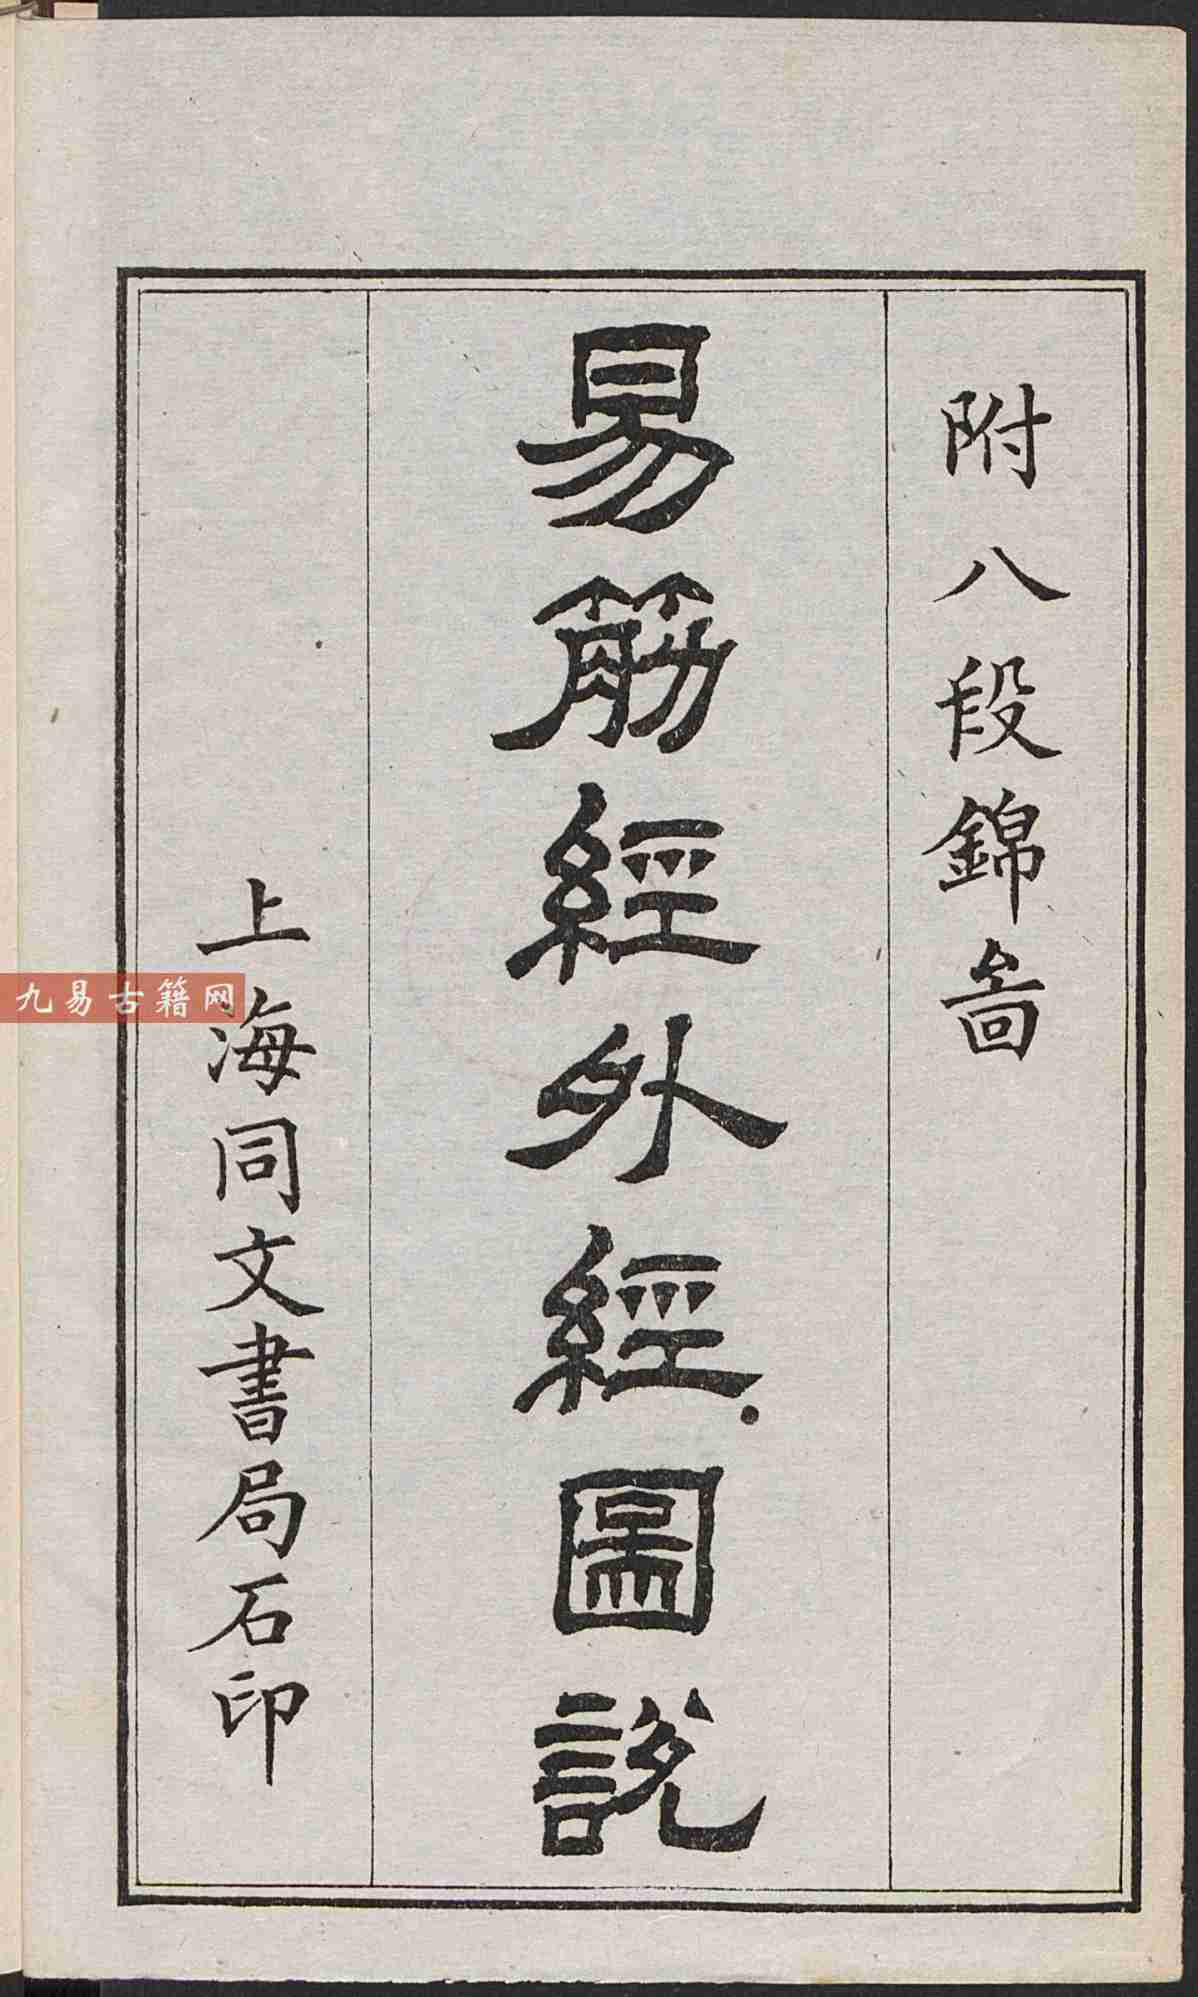 附八段錦啚
易筋經外經圖說
上海同文書局石印
九易古籍网